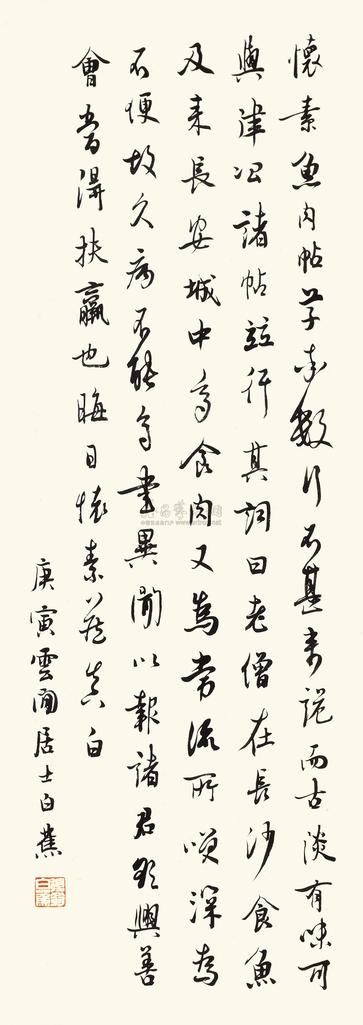 懷素魚肉帖草書數行不甚奇詭而古淡有味可
與律公諸帖竝行其詞曰老僧在長沙食魚
及來長安城中多食肉又為常流所笑深為
不便故久病不能多書異聞以報諸君欲興善
會當得扶羸也晦日懷素藏真白
庚寅雲間居士白蕉